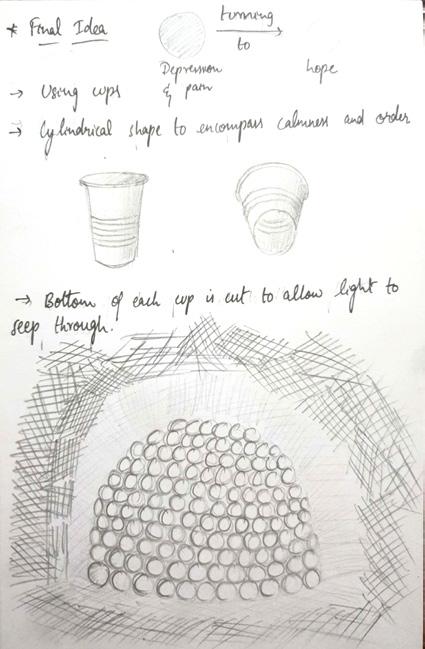 * Final Idea
turning
to
Depression
& pain
hope
→ Using cups
→ Cylindrical shape to encompass calmness and order
→ Bottom of each cup is cut to allow light to
seep through.